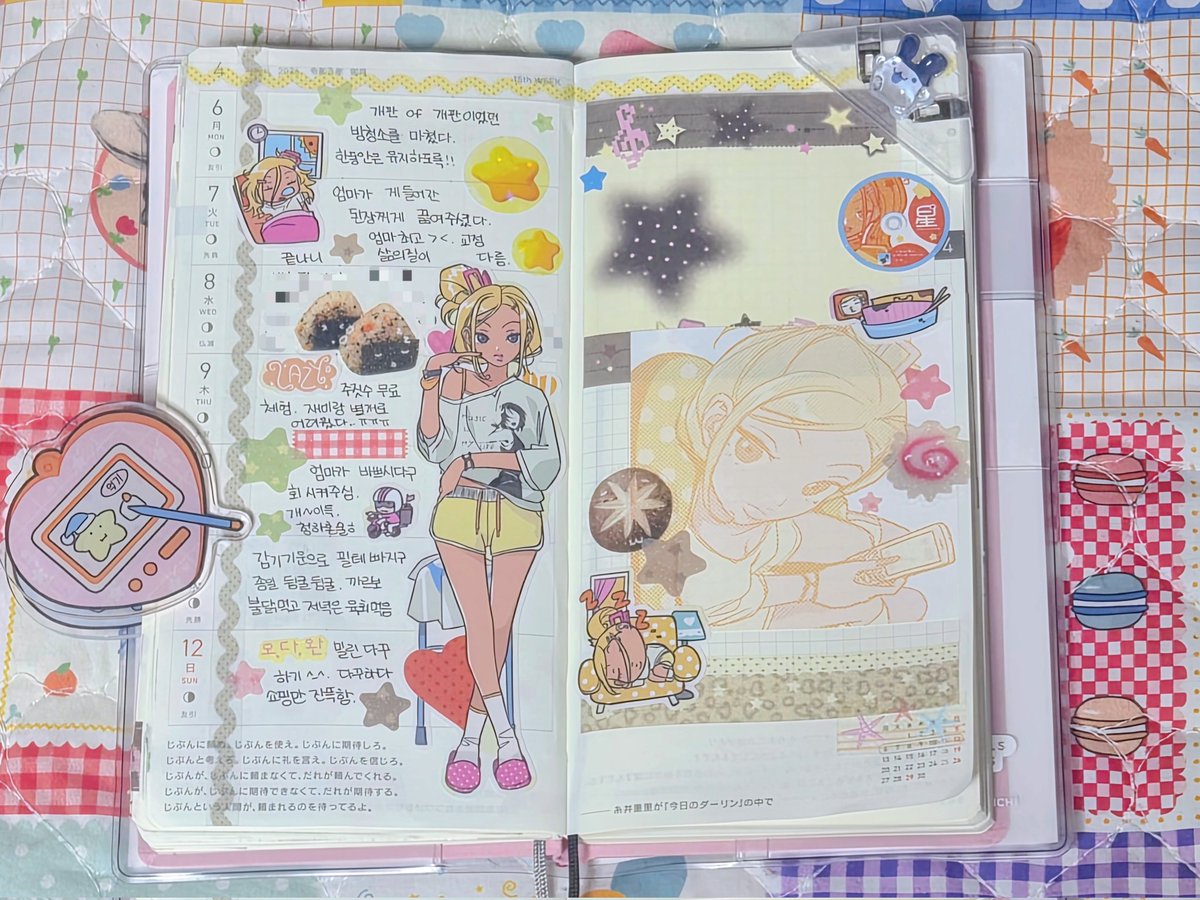 4
15th WEEK
6
月
MON
友引
개판 of 개판이였던
방청소를 마쳤다.
한동안은 유지하도록!!
7
火
TUE
先負
엄마가 게 들어간
된장찌게 끓여주셨다.
엄마 최고 ><. 교정
끝나니 삶의질이 다름.
8
水
WED
仏滅
9
木
THU
LAZY
주짓수 무료
체험. 재미랑 별개로
어려웠다..ㅠㅠㅠ
엄마가 바쁘시다구
회 시켜주심.
개~이득.
감기기운으로 필테 빠지구
종일 뒹굴뒹굴. 까르보
불닭먹고 저녁은 육회먹음
先勝
12
日
SUN
友引
오.다.완 밀린 다꾸
하기 ^^. 다꾸하다
쇼핑만 잔뜩함.
MUSIC
MY LIFE
星
ZZZ
じぶんに頼め。じぶんを使え。じぶんに期待しろ。
じぶんと考えろ。じぶんに礼を言え。じぶんを信じろ。
じぶんが、じぶんに頼まなくて、だれが頼んでくれる。
じぶんが、じぶんに期待できなくて、だれが期待する。
じぶんという人間が、頼まれるのを待ってるよ。
——糸井重里が『今日のダーリン』の中で